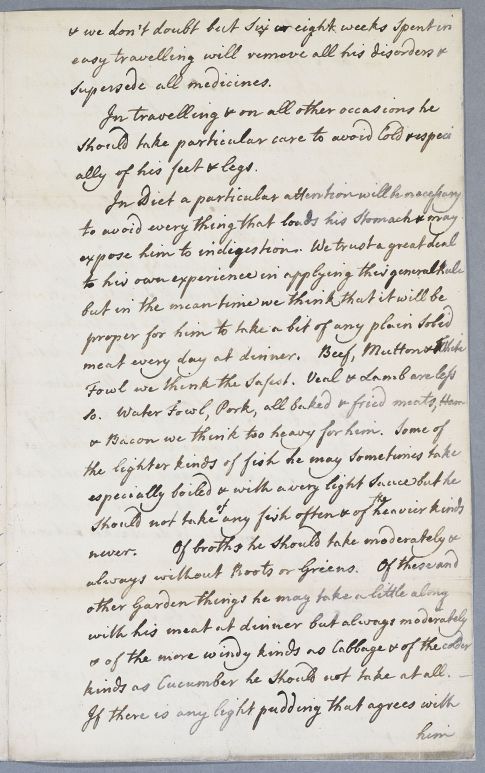 & we don't doubt but Six or eight weeks Spent in
easy travelling will remove all his disorders &
Supersede all medicines.
In travelling & on all other occasions he
Should take particular care to avoid Cold & especi
ally of his feet & legs.
In Diet a particular attention will be necessary
to avoid every thing that loads his Stomach & may
expose him to indigestion. We trust a great deal
to his own experience in applying this general Rule
but in the mean time we think that it will be
proper for him to take a bit of any plain Solid
meat every day at dinner. Beef, Mutton & White
Fowl we think the Safest. Veal & Lamb are less
So. Water Fowl, Pork, all baked & fried meats, Ham
& Bacon we think too heavy for him. Some of
the lighter kinds of fish he may Sometimes take
especially boiled & with a very light Sauce but he
Should not take of any fish often & of the heavier kinds
never. Of broths he Should take moderately &
always without Roots or Greens. Of these and
other Garden things he may take a little along
with his meat at dinner but always moderately
& of the more windy kinds as Cabbage & of the colder
kinds as Cucumber he Should not take at all. —
If there is any light pudding that agrees with
him